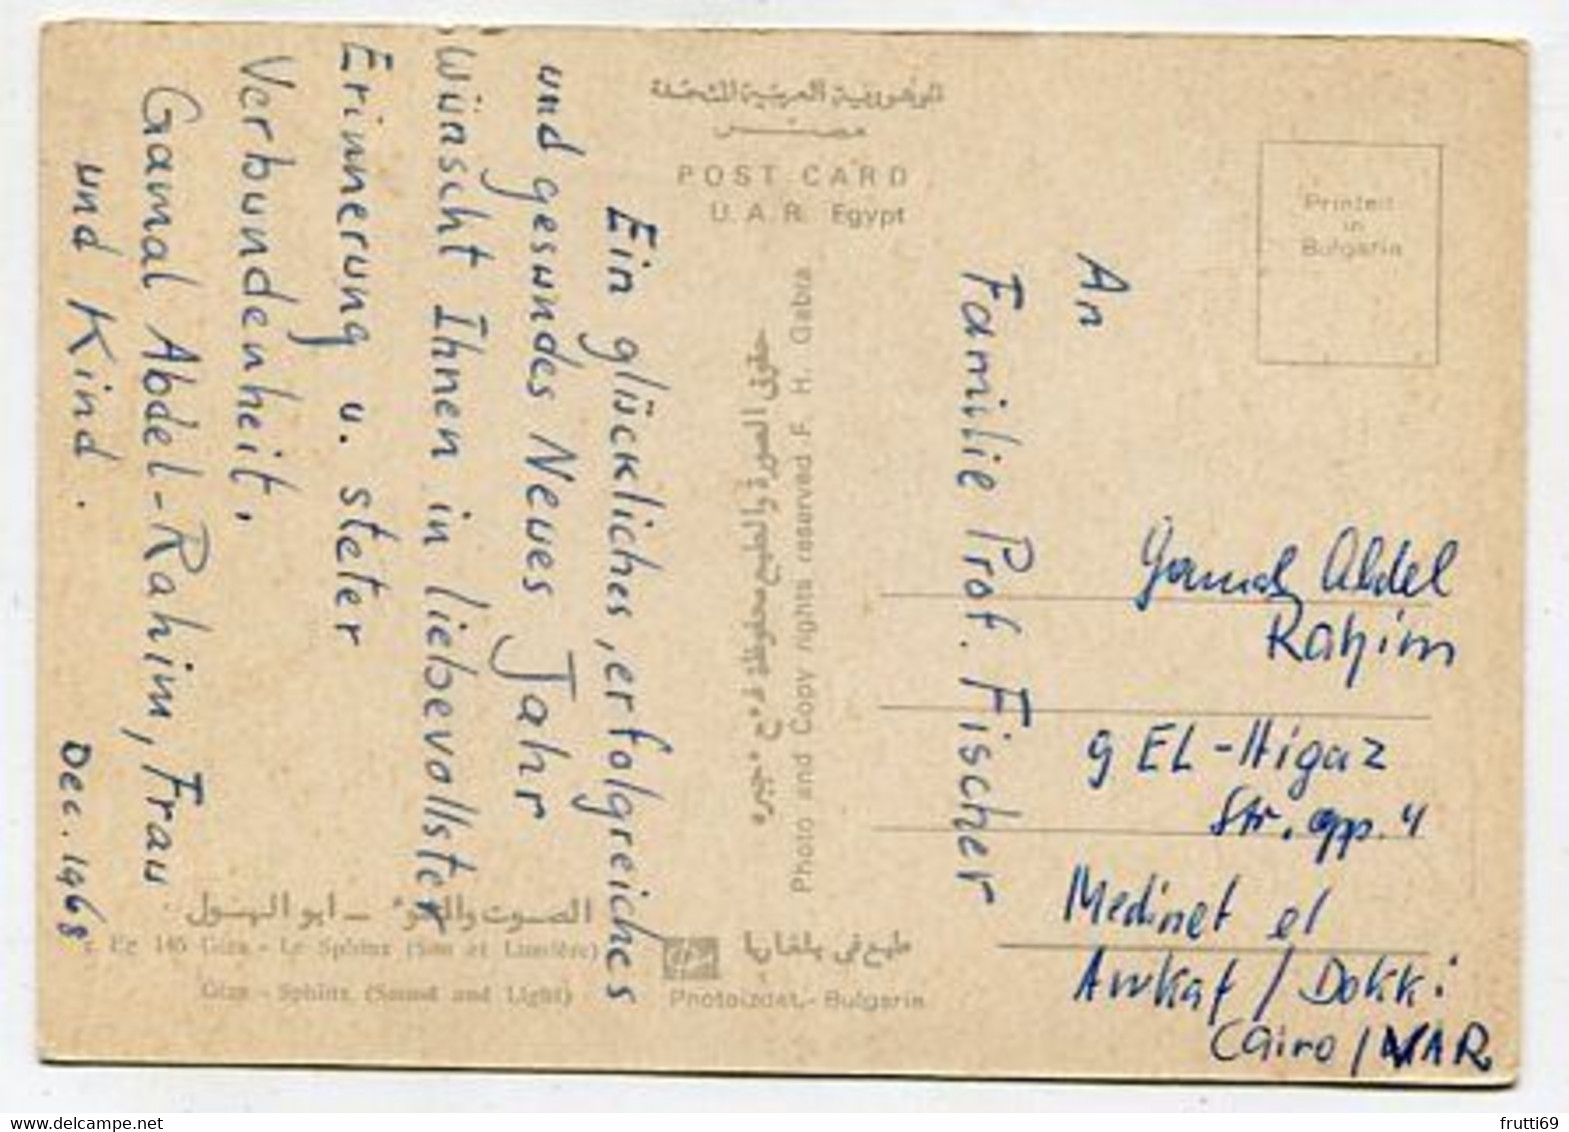 الجمهورية العربية المتحدة
مصر
POST CARD
U. A. R. Egypt
Printed
in
Bulgaria
Ein glückliches, erfolgreiches
und gesundes Neues Jahr
wünscht Ihnen in liebevollster
Erinnerung u. steter
Verbundenheit,
Gamal Abdel-Rahim, Frau
und Kind.
Dec. 1968
حقوق الصورة والطبع محفوظة
Photo and Copy rights reserved F. H. Gabia
An
Familie Prof. Fischer
Gamal Abdel
Rahim
9 EL-Higaz
Str. app. 4
Medinet el
Awkaf / Dokki
Cairo / UAR
الصوت والضوء - ابو الهول
Eg 145 Giza - Le Sphinx (Son et Lumière)
Giza - Sphinx (Sound and Light)
طبع في بلغاريا
Photoizdat, - Bulgaria
frutti69